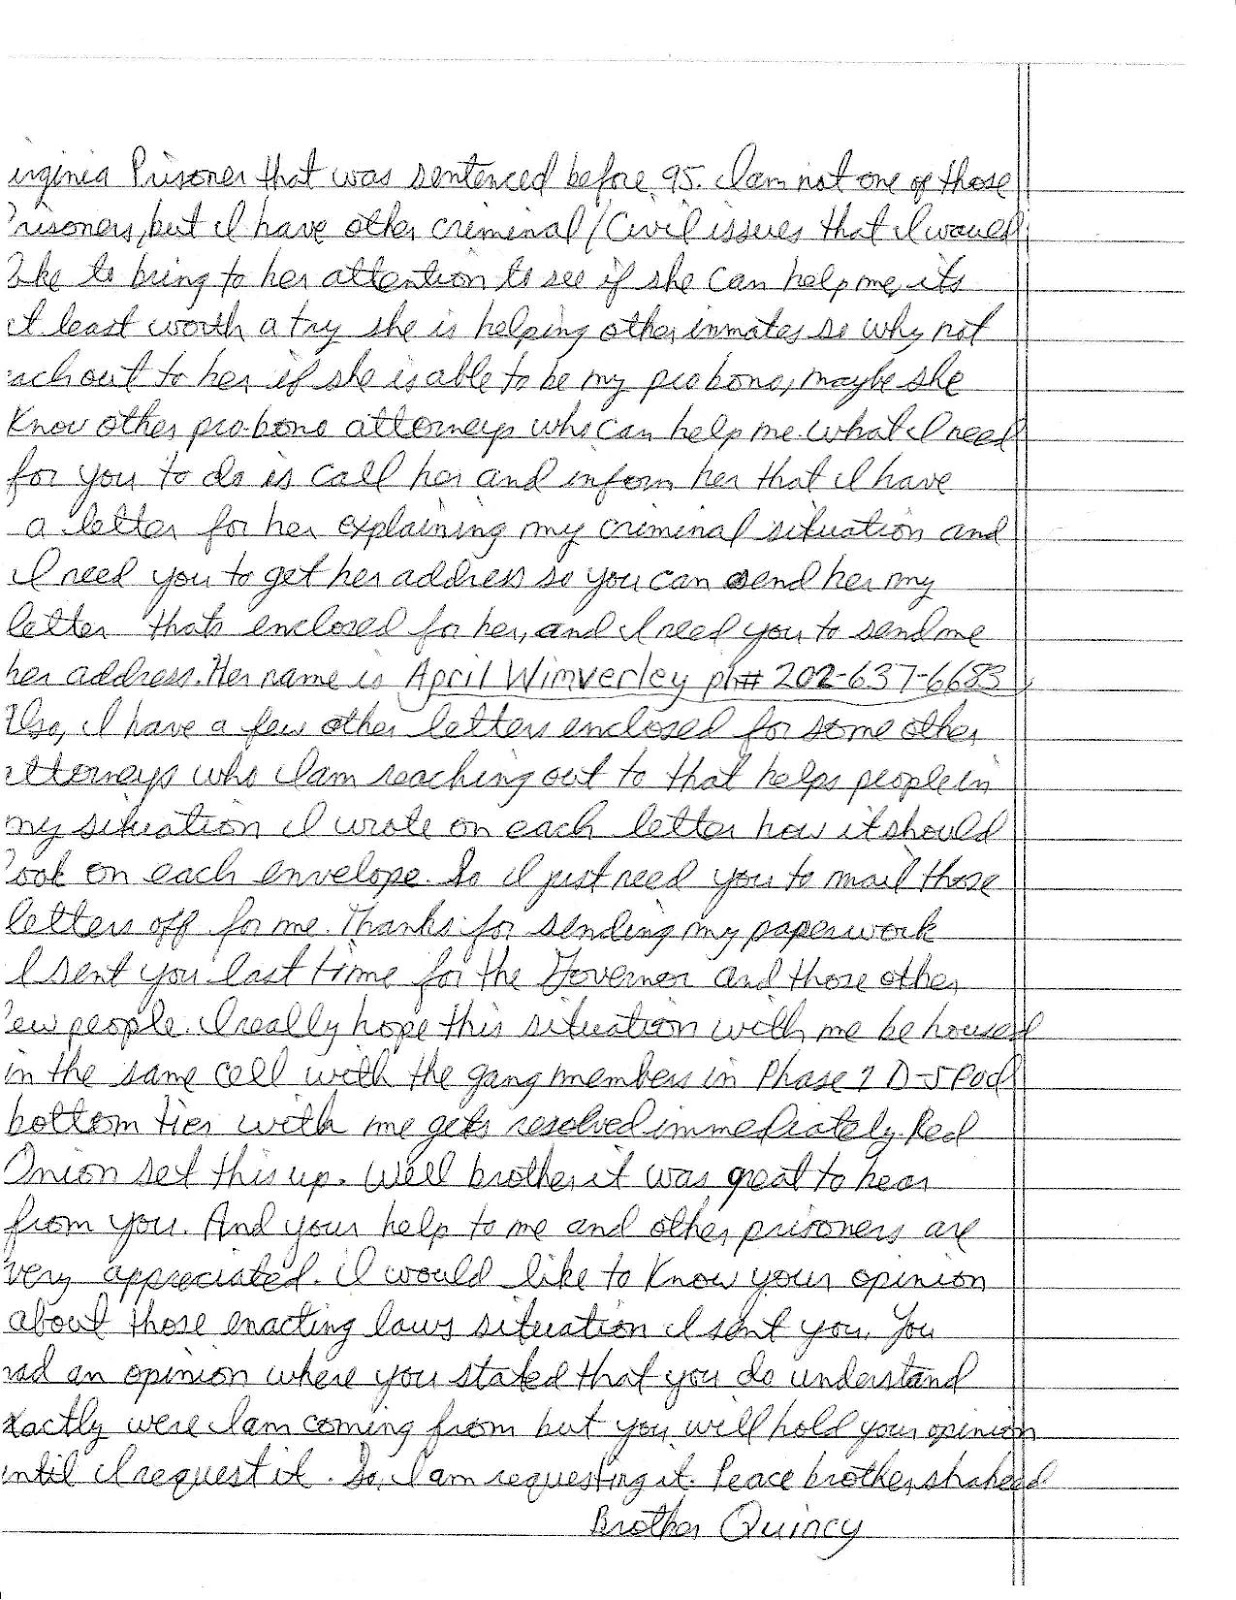 irginia Prisoner that was sentenced before 95. I am not one of those
risoners, but I have other criminal/Civil issues that I would
like to bring to her attention to see if she can help me, its
at least worth a try she is helping other inmates so why not
each out to her if she is able to be my pro bono, maybe she
know other pro-bono attorneys who can help me. what I need
for you to do is call her and inform her that I have
a letter for her explaining my criminal situation and
I need you to get her address so you can send her my
letter thats enclosed for her, and I need you to send me
her address. Her name is April Wimverley ph# 202-637-6683
Also, I have a few other letters enclosed for some other
attorneys who I am reaching out to that helps people in
my situation I wrote on each letter how it should
look on each envelope. So I just need you to mail those
letters off for me. Thanks for sending my paperwork
I sent you last time for the Governor and those other
few people. I really hope this situation with me be housed
in the same cell with the gang members in Phase 1 D-5 Pod
bottom tier with me gets resolved immediately. Red
Onion set this up. Well brother it was great to hear
from you. And your help to me and other prisoners are
very appreciated. I would like to know your opinion
about those enacting laws situation I sent you. You
had an opinion where you stated that you do understand
xactly were I am coming from but you will hold your opinion
until I request it. So, I am requesting it. Peace brother shaheed
Brother Quincy